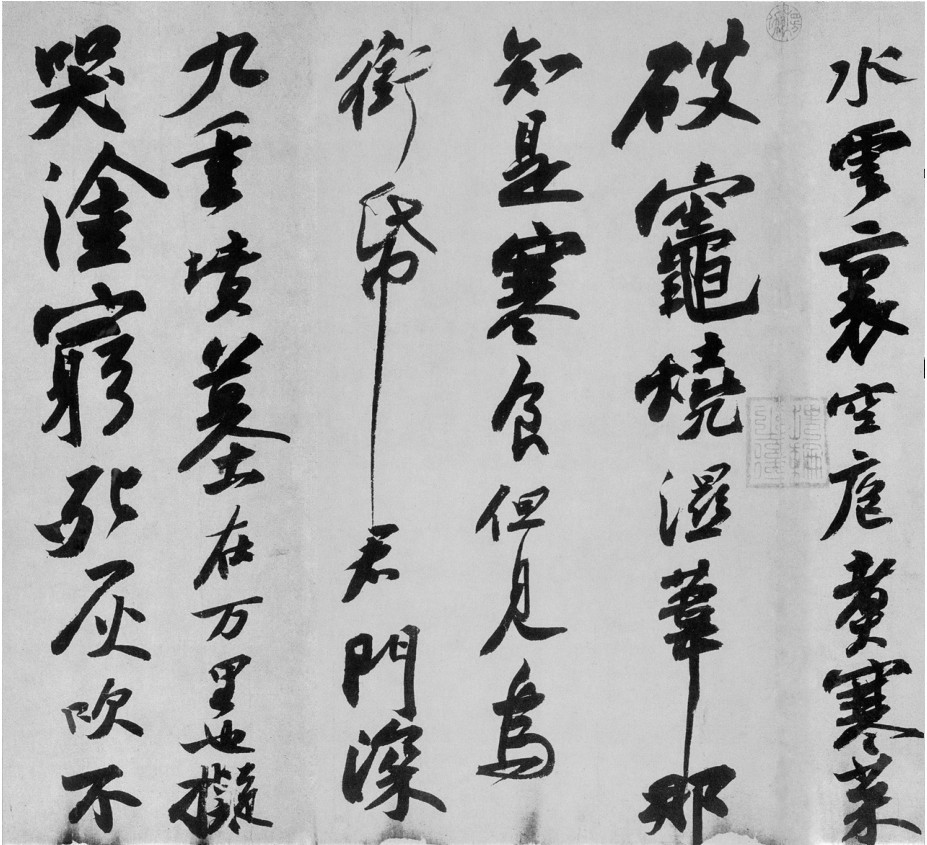 水雲裏空庖煑寒菜
破竈燒濕葦那
知是寒食但見烏
銜帋君門深
九重墳墓在万里也擬
哭塗窮死灰吹不